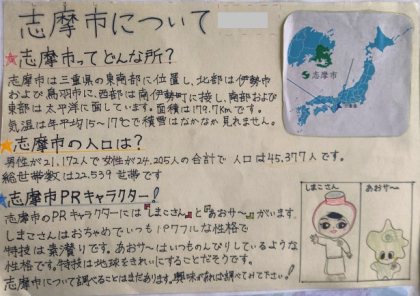 志摩市について
志摩市ってどんな所?
志摩市は三重県の東南部に位置し、北部は伊勢市
および鳥羽市に、西部は南伊勢町に接し、南部および
東部は太平洋に面しています。面積は179.7Kmです。
気温は年平均15〜17℃で積雪はなかなか見れません。
志摩市の人口は?
男性が21,172人で女性が24,205人の合計で人口は45,377人です。
総世帯数は22,539世帯です
志摩市PRキャラクター!
志摩市のPRキャラクターには「しまこさん」と「あおサ〜」がいます。
しまこさんはおちゃめでいつもパワフルな性格で
特技は素潜りです。あおサ〜はいつものんびりしているような
性格です。特技は地球をきれいにすることだそうです。
志摩市について調べることはまだあります。興味があれば調べてみて下さい!
志摩市
しまこさん
あおサ〜